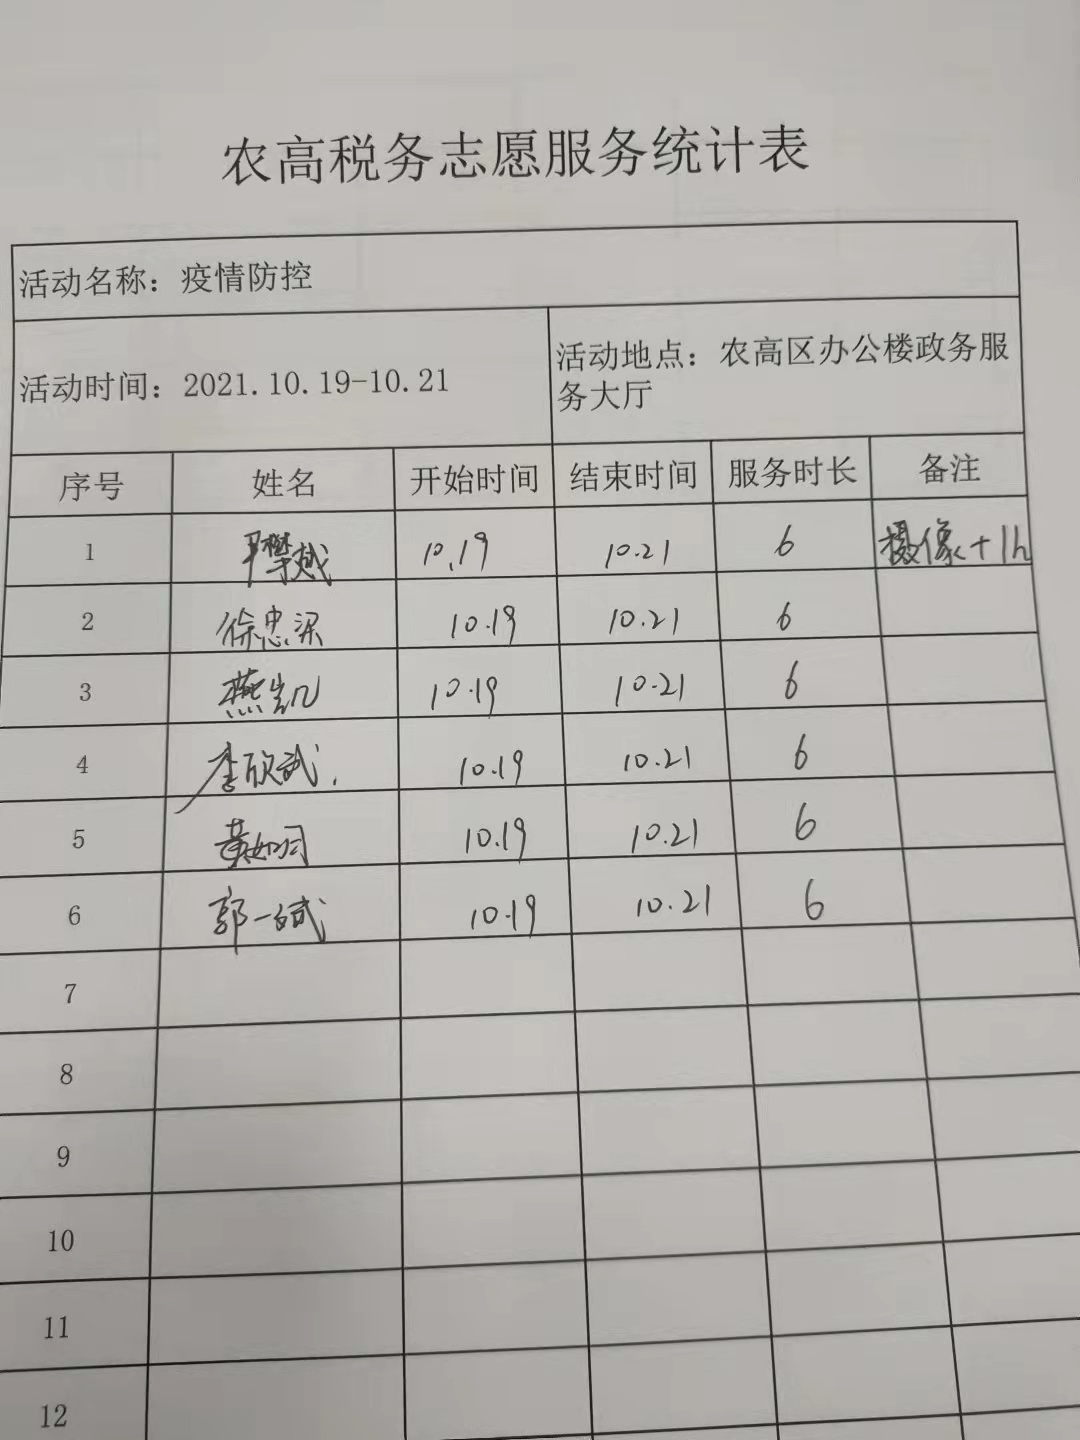 农高税务志愿服务统计表
活动名称：疫情防控
活动时间：2021.10.19-10.21
活动地点：农高区办公楼政务服
务大厅
序号 姓名 开始时间 结束时间 服务时长 备注
1 樊越 10.19 10.21 6 摄像+1h
2 徐忠梁 10.19 10.21 6
3 燕凯 10.19 10.21 6
4 李欣 10.19 10.21 6
5 黄如 10.19 10.21 6
6 郭一斌 10.19 10.21 6
7
8
9
10
11
12